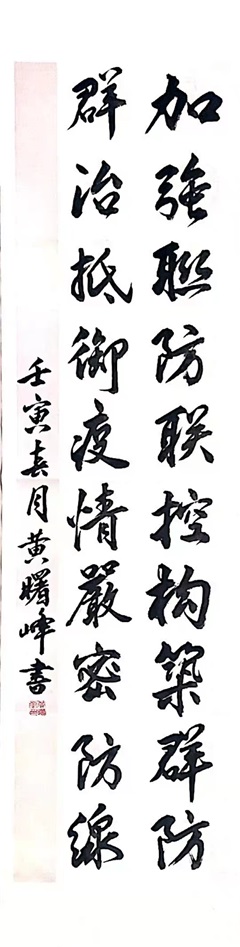 加強聯防联控构築群防
群治抵御疫情嚴密防線
壬寅春月黄曙峰書